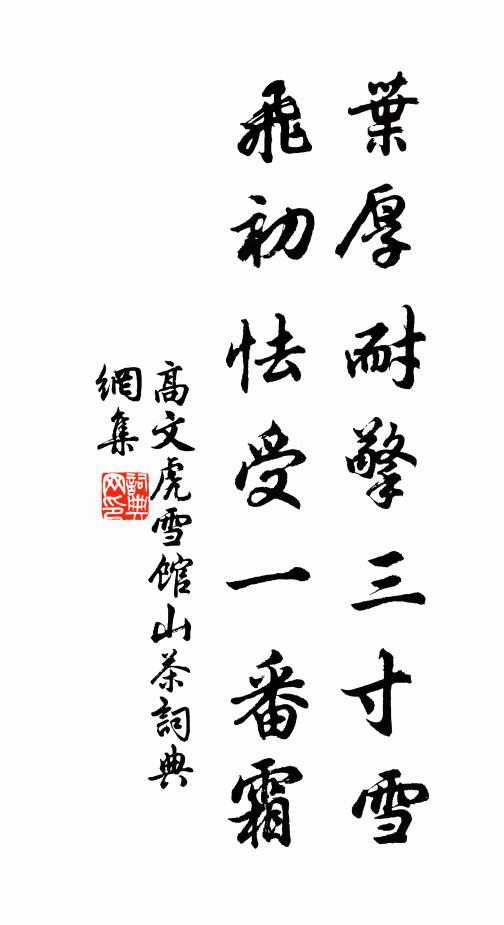 葉厚耐擎三寸雪
飛初怯受一番霜
高文虎雪館山茶詞典
網集
詞典
网印